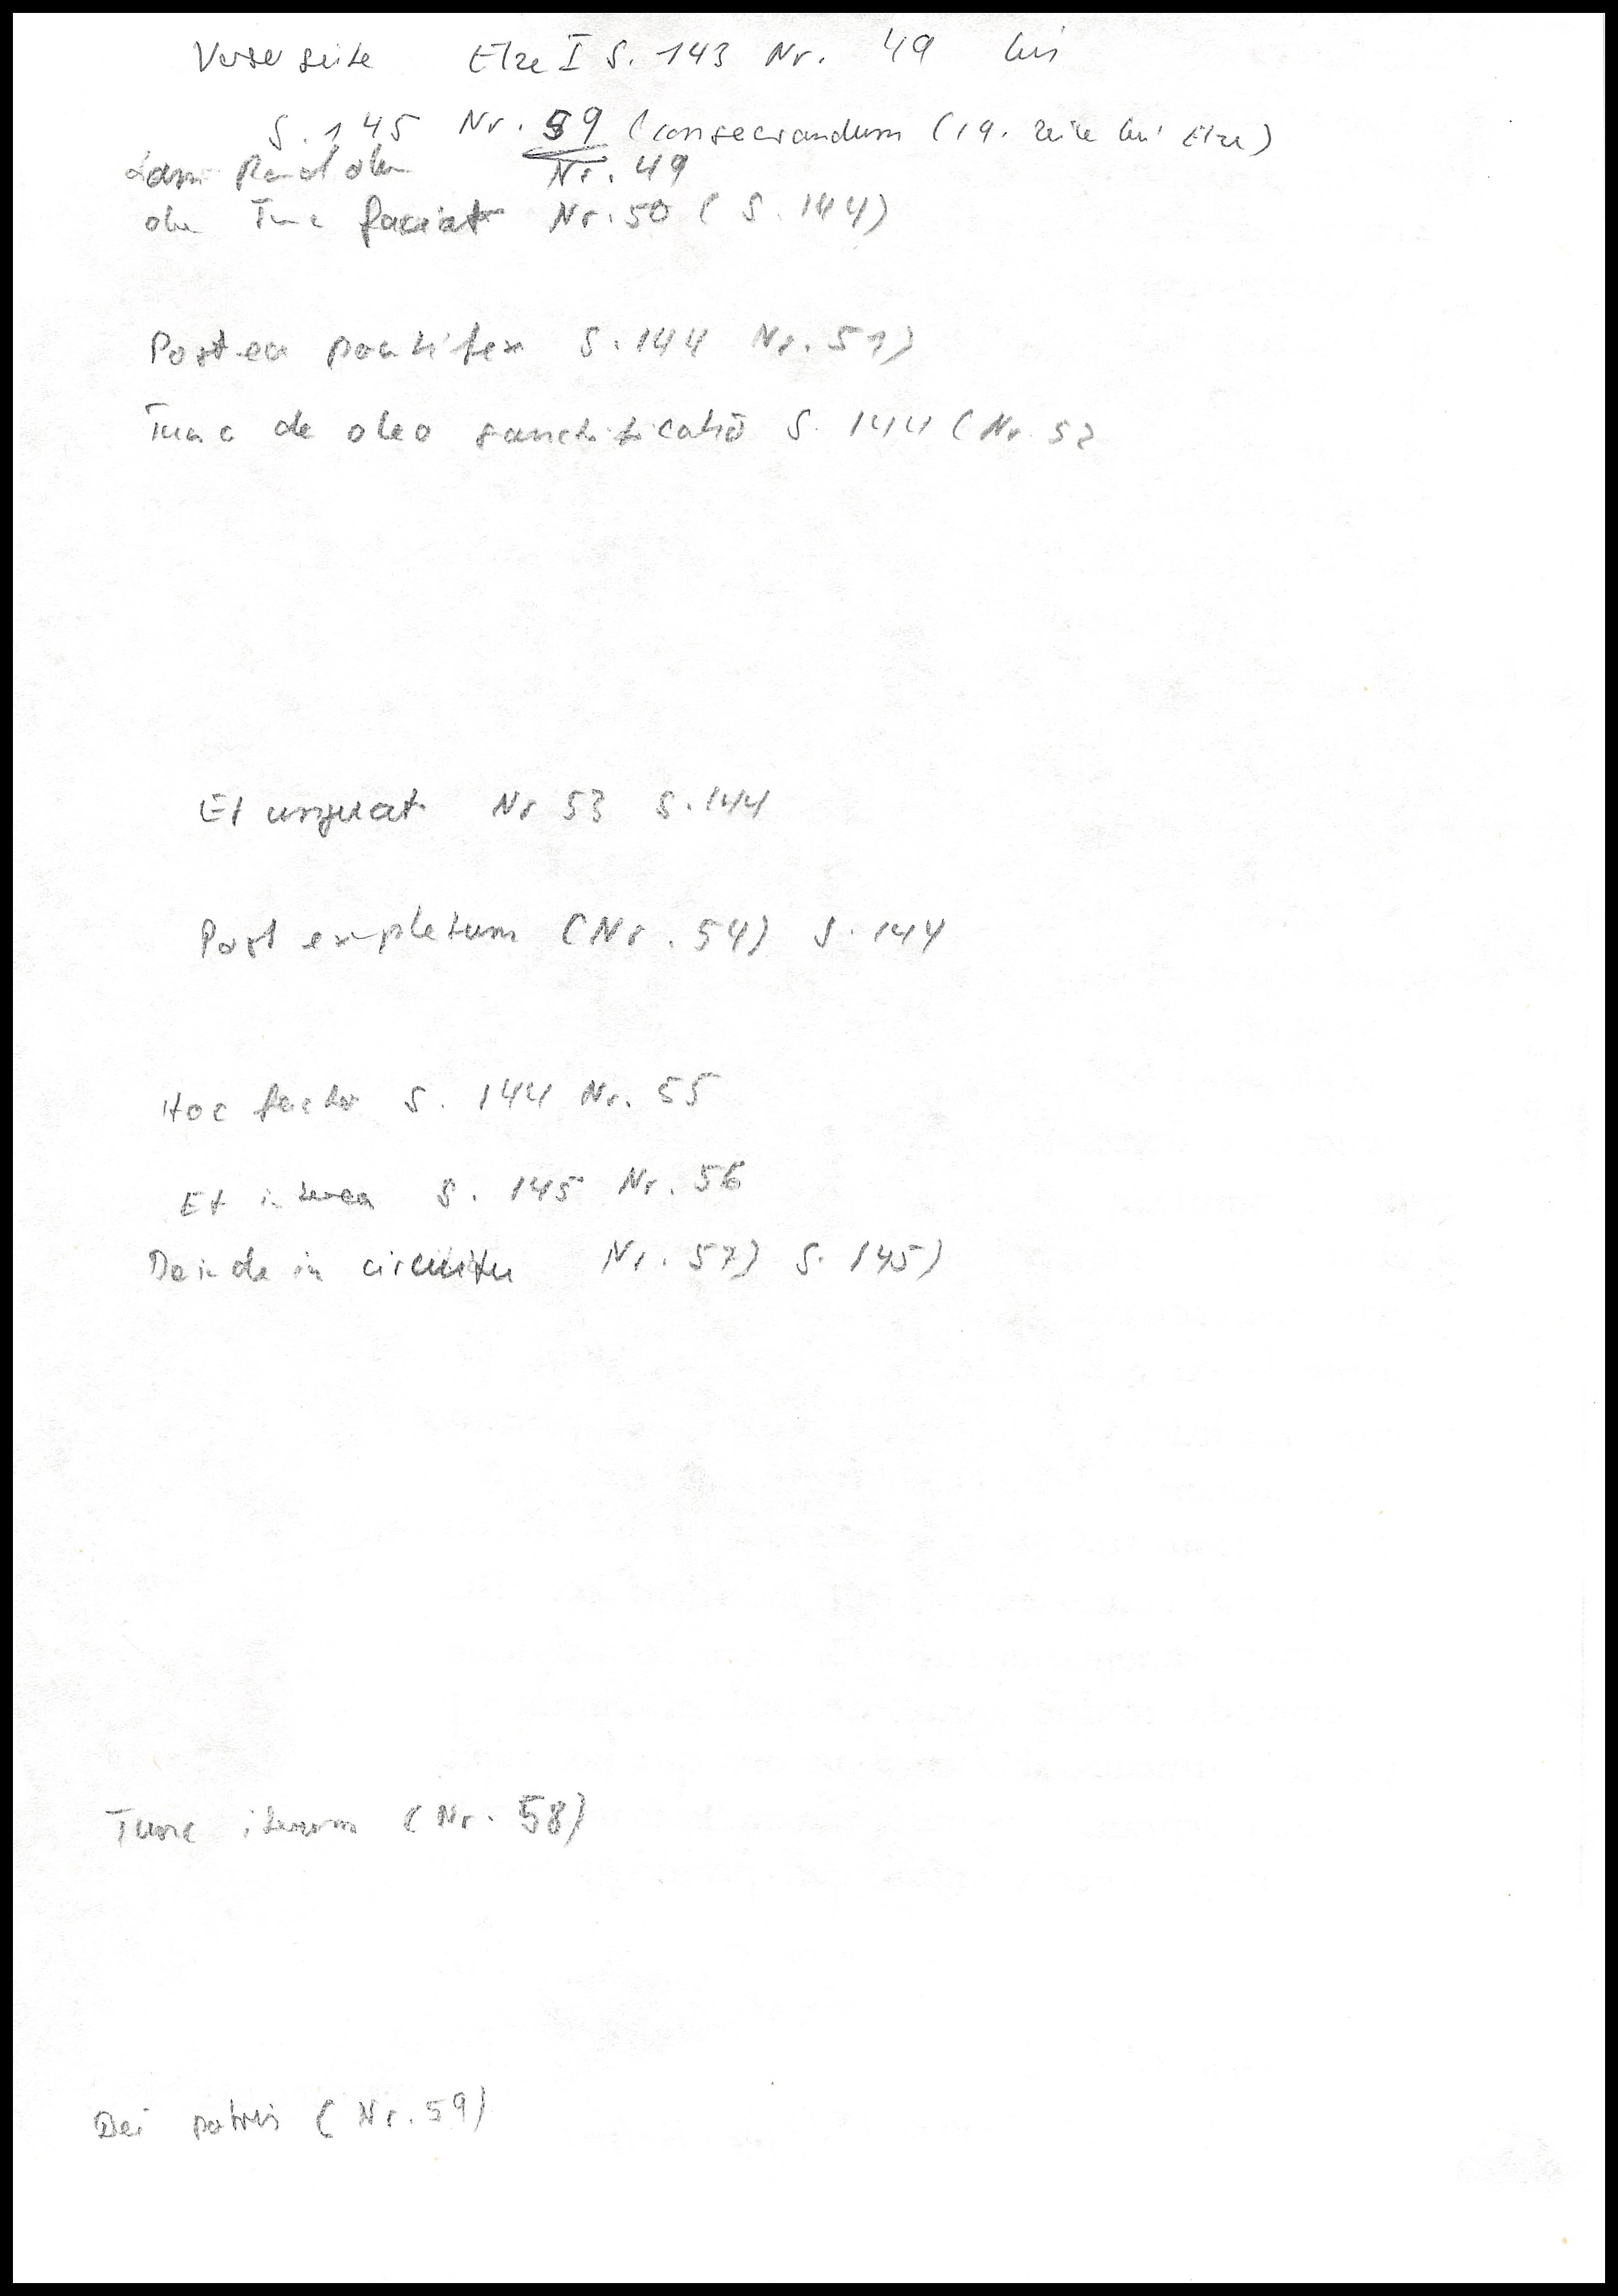 Vorderseite Elze I S. 143 Nr. 49 bis
S. 145 Nr. 59 (consecrandum (19. Zeile bei Elze)
Rand oben Nr. 49
Tunc faciat Nr. 50 (S. 144)
Postea pontifex S. 144 Nr. 51)
Tunc de oleo sanctificato S. 144 (Nr. 52
Et unguat Nr 53 S. 144
Post expletum (Nr. 54) S. 144
Hoc facto S. 144 Nr. 55
Et interea S. 145 Nr. 56
Deinde in circuitu Nr. 57) S. 145)
Tunc iterum (Nr. 58)
Dei patris (Nr. 59)